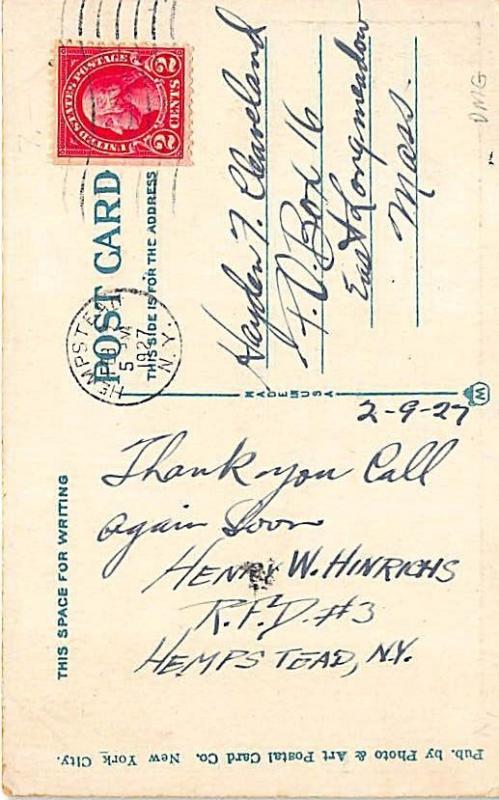 UNITED STATES POSTAGE
2 CENTS 2
POST CARD
THIS SIDE IS FOR THE ADDRESS
HEMPSTEAD
FEB
5 PM
1927
N.Y.
Hayden F. Cleaveland
P.O. Box 16
East Longmeadow
Mass.
DMG
MADE IN USA
THIS SPACE FOR WRITING
2-9-27
Thank you Call
again Soon
HENRY W. HINRICHS
R.F.D. #3
HEMPSTEAD, N.Y.
Pub. by Photo & Art Postal Card Co. New York City.